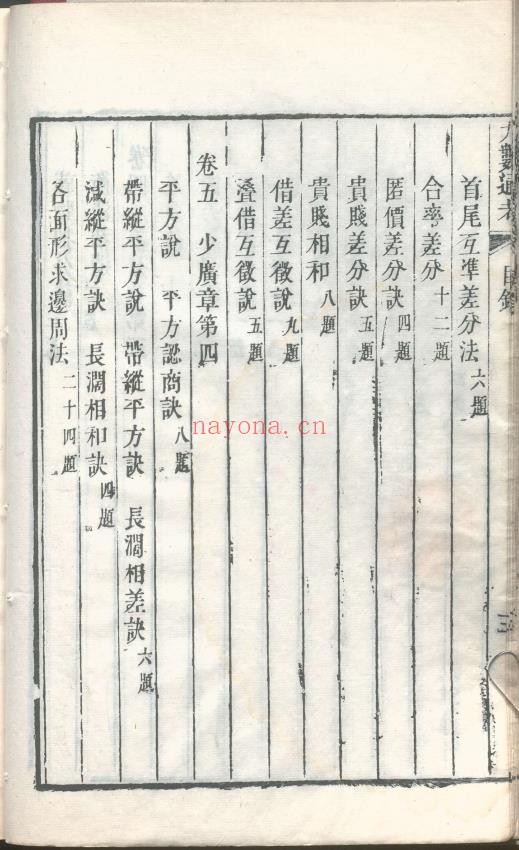 九數通考
目錄
三
首尾互準差分法 六題
合率差分 十二題
匿價差分訣 四題
貴賤差分訣 五題
貴賤相和 八題
借差互徵說 九題
疊借互徵說 五題
卷五 少廣章第四
平方說 平方認商訣 八題
帶縱平方說 帶縱平方訣 長濶相差訣 六題
減縱平方訣 長濶相和訣 四題
各面形求邊周法 二十四題
nayona.cn